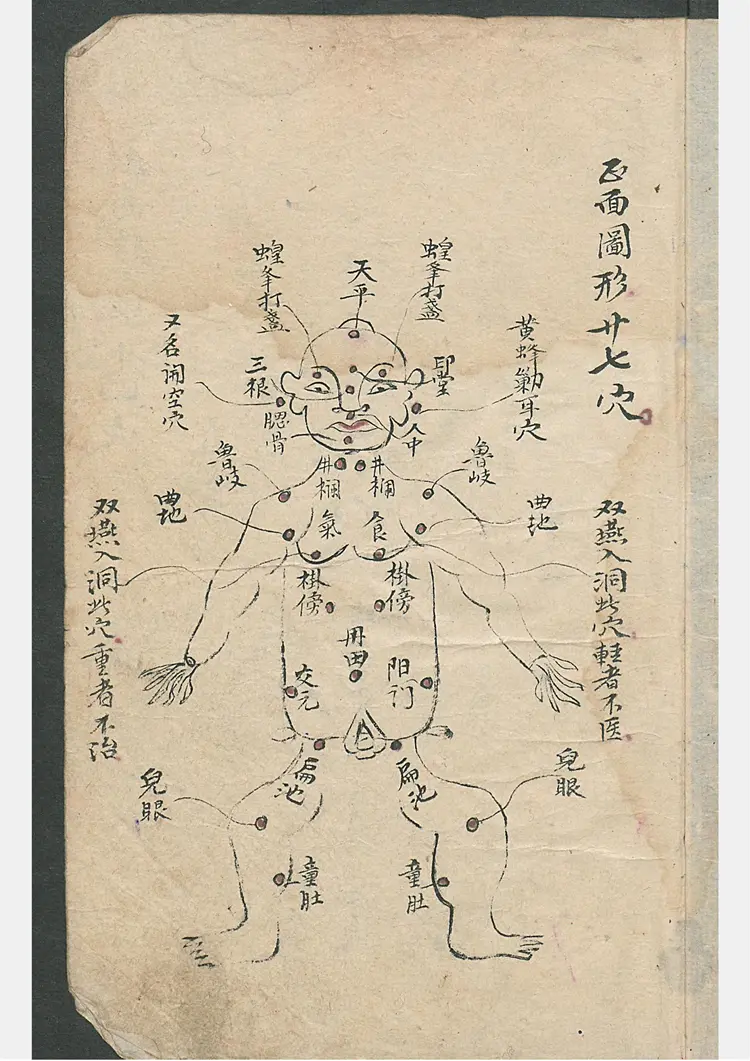 正面圖形廿七穴
蝗蜂打盞
天平
蝗蜂打盞
黄蜂𠞰耳穴
印堂
三根
又名闭空穴
腮骨
人中
魯岐
井欄
井欄
魯岐
曲地
食
氣
曲地
双燕入洞此穴輕者不医
掛傍
掛傍
双燕入洞此穴重者不治
丹田
阳门
交元
扁池
扁池
兒眼
兒眼
童肚
童肚